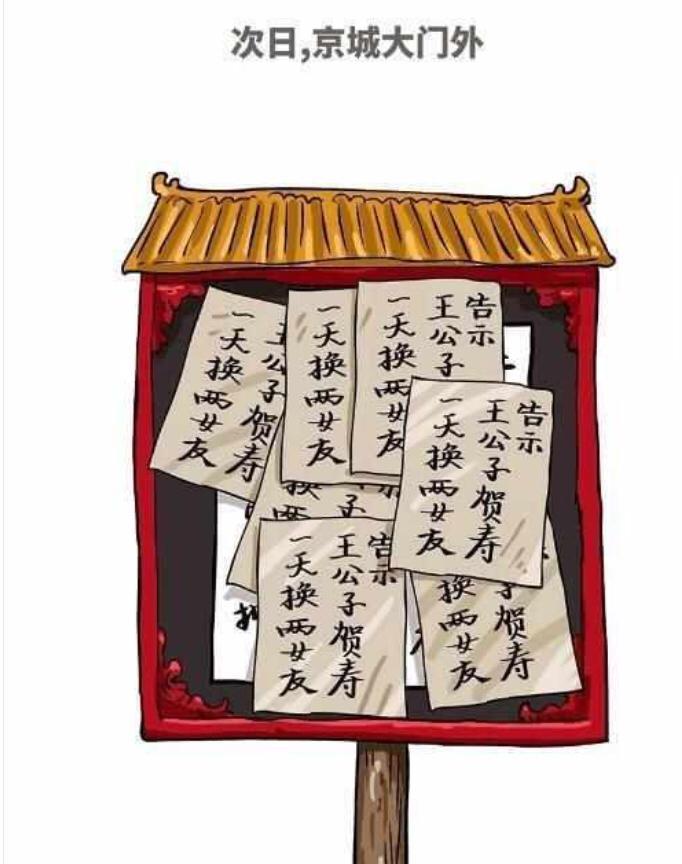 次日,京城大门外
王公子贺寿
一天换两女友
一天换两女友
告示
王公子
一天换两女
告示
王公子贺寿
一天换两女友
子
换两
告示
王公子贺寿
一天换两女友
子贺寿
换两女友